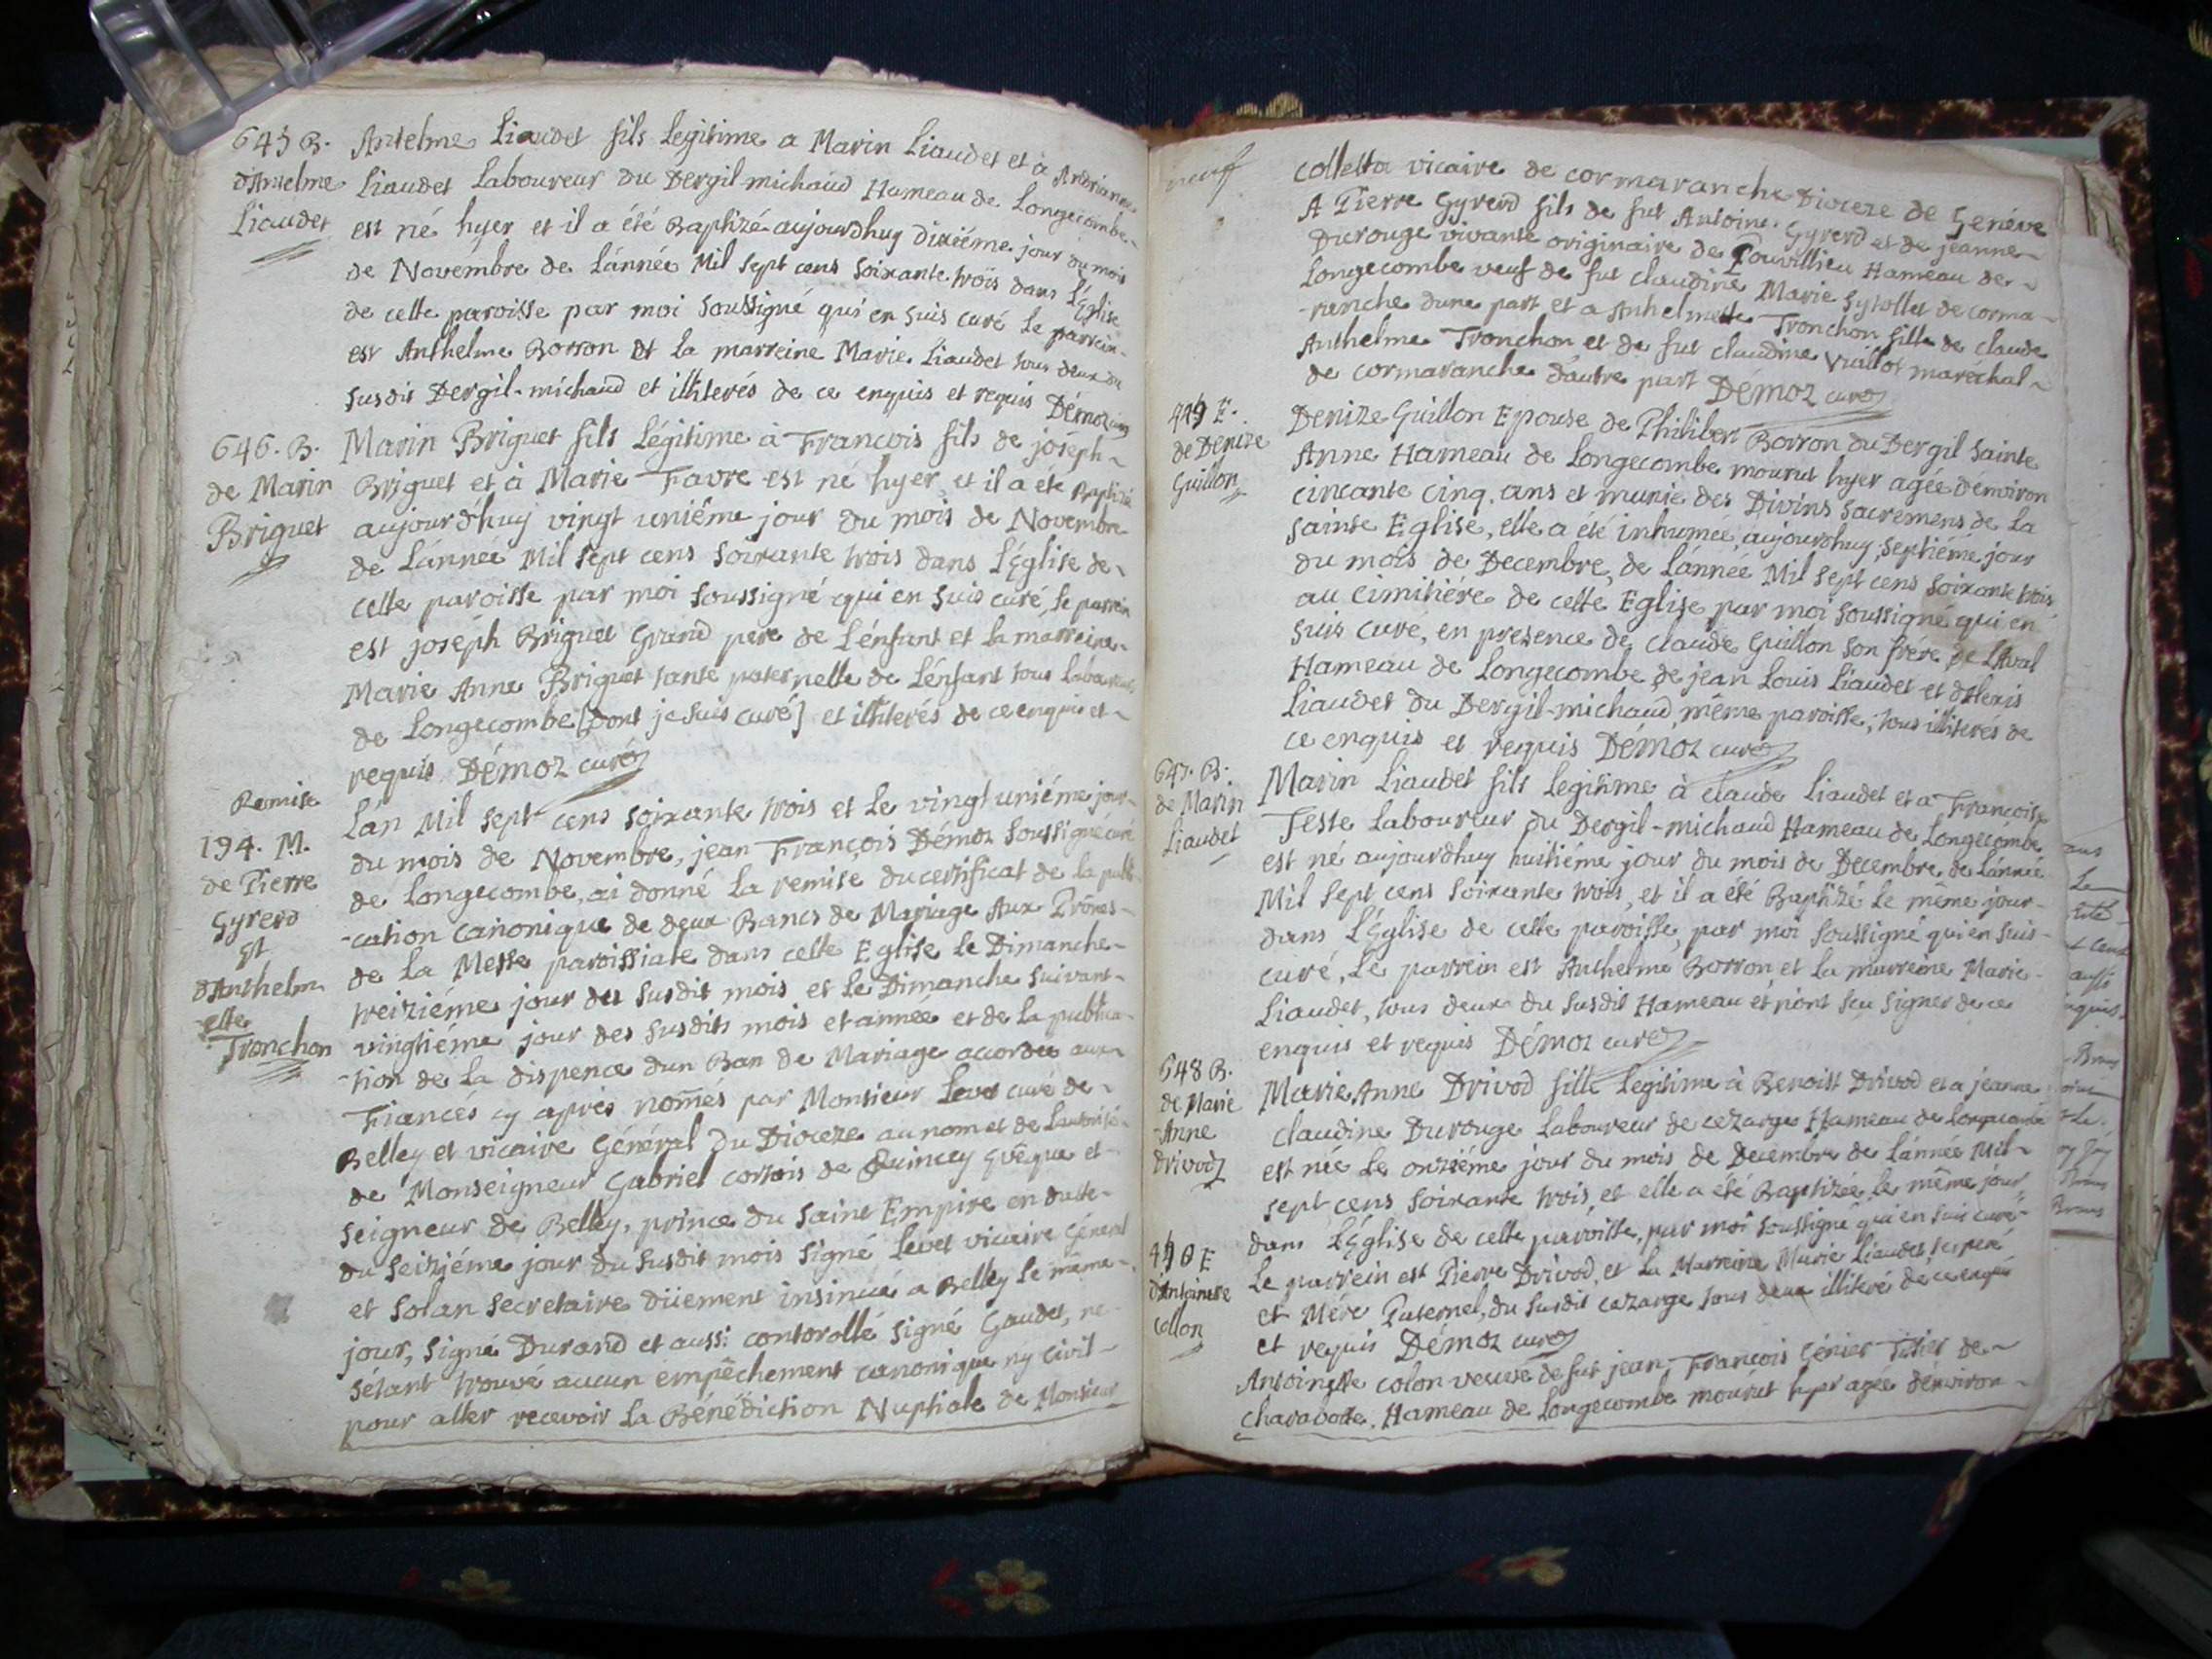 645 B.
d'Antelme
Liaudet
Antelme Liaudet fils legitime a Marin Liaudet et à Andrianne
Liaudet Laboureur du Dergil michaud Hameau de Longecombe
est né hyer et il a été Baptizé aujourdhuy dixiéme jour du mois
de Novembre de Lánnée Mil sept cens soixante trois dans L'Eglise
de cette paroisse par moi soussigné qui en suis curé le parrein
est Anthelme Borron et la marreine Marie Liaudet tous deux du
susdit Dergil-michaud et illiterés de ce enquis et requis Démoz curé
646. B.
de Marin
Briguet
Marin Briguet fils Légitime à Francois fils de joseph
Briguet et à Marie Favre est né hyer et il a été Baptizé
aujourd'huy vingt uniéme jour du mois de Novembre
de Lánnée Mil sept cens soixante trois dans L'Eglise de
cette paroisse par moi soussigné qui en suis curé, le parrein
est joseph Briguet Grand pere de Lénfant et la marreine
Marie Anne Briguet tante paternelle de Lénfant tous Laboureurs
de Longecombe [dont je suis curé] et illiterés de ce enquis et
requis Démoz curé
Remise
194. M.
de Pierre
Gyrerd
Et
d'Anthelm
ette
Tronchon
Lan Mil sept cens soixante trois et le vingt uniéme jour
du mois de Novembre, jean François Démoz soussigné curé
de Longecombe, ai donné la remise du certificat de la publi-
-cation canonique de deux Bancs de Mariage Aux Prônes
de la Messe paroissiale dans cette Eglise le Dimanche
treiziéme jour du susdit mois et le Dimanche suivant
vingtiéme jour des susdits mois et année et de la publica-
-tion de la dispence dun Ban de Mariage accordée aux
Fiancés cy aprés nom̃és par Monsieur Levet curé de
Belley et vicaire Général du Dioceze au nom et de Lautorité
de Monseigneur Gabriel cortois de Quincey Evêque et
seigneur de Belley, prince du saint Empire en datte
du seiziéme jour du susdit mois signé Levet vicaire Général
et Solan secretaire düement insinué a Belley le même
jour, signé Durand et aussi contorollé signé Gaudet, ne
sétant trouvé aucun empêchement canonique ny civil
pour aller recevoir la Bénédiction Nuptiale de Monsieur
neuf
colletta vicaire de cormaranche Dioceze de Genéve
A Pierre Gyrerd fils de fut Antoine Gyrerd et de jeanne
Durouge vivante originaire de Pouvillieu Hameau de
Longecombe veuf de fut claudine Marie Sytollet de corma-
-ranche dune part et a Anthelmette Tronchon fille de claude
Anthelme Tronchon et de fut claudine Vuillot marechal
de cormaranche dáutre part Démoz curé
449 E.
de Denize
Guillon
Denize Guillon Epouse de Philibert Borron du Dergil sainte
Anne Hameau de Longecombe mourut hyer agée denviron
cincante cinq ans et munie des Divins sacremens de la
sainte Eglise, elle a été inhumée aujourdhuy septiéme jour
du mois de Decembre, de Lánnée Mil sept cens soixante trois
au cimitiére de cette Eglise par moi soussigné qui en
suis curé, en presence de claude Guillon son frére de Laval
Hameau de Longecombe de jean Louis Liaudet et dAlexis
Liaudet du Dergil-michaud même paroisse, tous illiterés de
ce enquis et requis Démoz curé
647. B.
de Marin
Liaudet
Marin Liaudet fils Legitime à claude Liaudet et a Francoise
Teste Laboureur du Dergil-michaud Hameau de Longecombe
est né aujourdhuy huitiéme jour du mois de Decembre de Lánnée
Mil sept cens soixante trois, et il a été Baptizé le même jour
dans L'Eglise de cette paroisse, par moi soussigné qui en suis
curé, le parrein est Anthelme Borron et la marreine Marie
Liaudet, tous deux du susdit Hameau et n'ont sçu signer de ce
enquis et requis Démoz curé
648 B.
de Marie
-Anne
Drivod
Marie Anne Drivod fille Legitime à Benoist Drivod et a jeanne
claudine Durouge Laboureur de cezarge Hameau de Longecombe
est née le onziéme jour du mois de Decembre de Lánnée Mil
sept cens soixante trois, et elle a été Baptizée le même jour
dans L'Eglise de cette paroisse, par moi soussigné qui en suis curé
le parrein est Pierre Drivod, et la Marreine Marie Liaudet, ses peré
et Mére Paternel, du susdit cezarge tous deux illiteré de ce enquis
et requis Démoz curé
d'Antoinette
Collon
Antoinette colon veuve de fut jean, Francois Génier Tixier de
charabotte, Hameau de Longecombe mourut hyer agée denviron